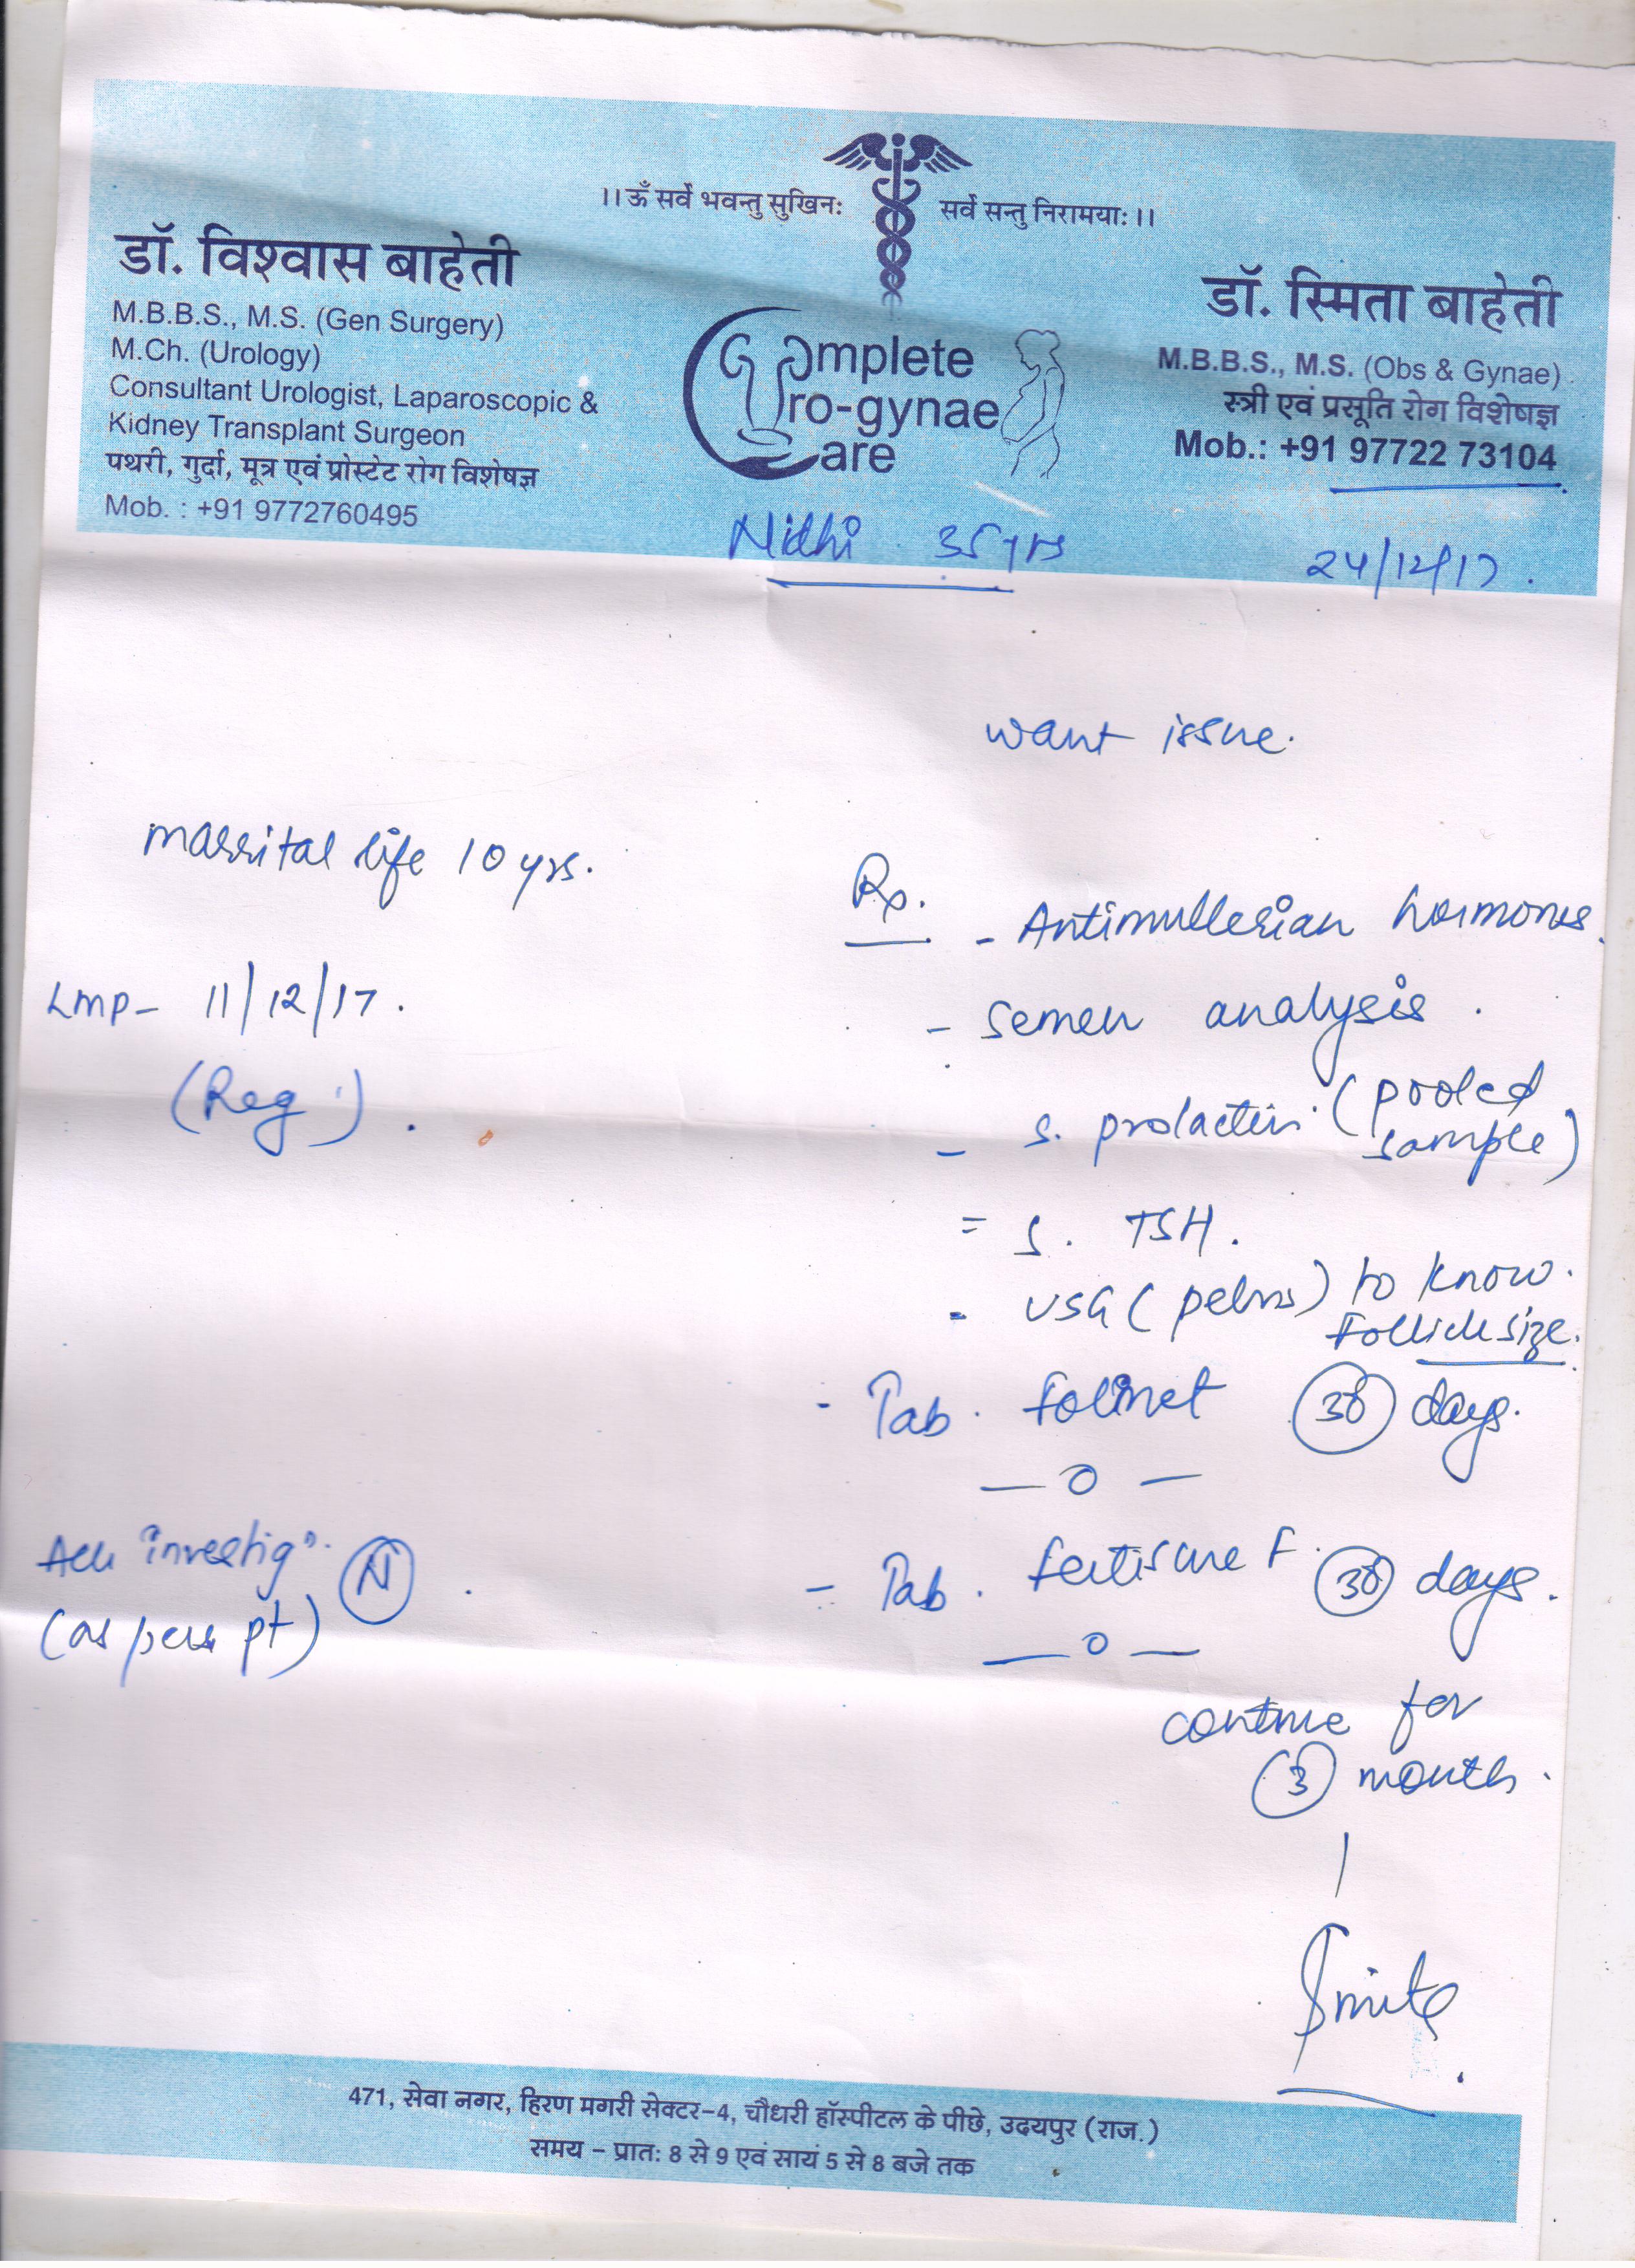 ।। ॐ सर्वे भवन्तु सुखिनः सर्वे सन्तु निरामयाः ।।
डॉ. विश्वास बाहेती
M.B.B.S., M.S. (Gen Surgery)
M.Ch. (Urology)
Consultant Urologist, Laparoscopic &
Kidney Transplant Surgeon
पथरी, गुर्दा, मूत्र एवं प्रोस्टेट रोग विशेषज्ञ
Mob. : +91 9772760495
Complete
Uro-gynae
Care
डॉ. स्मिता बाहेती
M.B.B.S., M.S. (Obs & Gynae)
स्त्री एवं प्रसूति रोग विशेषज्ञ
Mob.: +91 97722 73104
Nidhi 35 yrs
24/12/17.
want issue.
marrital life 10 yrs.
LMP- 11/12/17.
(Reg.).
Rx.
- Antimullerian hormones.
- semen analysis.
- s. prolactin (pooled
sample)
= S. TSH.
- USG (pelvis) to know.
follicle size.
- Tab. folinet (30) days.
— 0 —
All investign. (N).
(as per pt)
- Tab. fertisure F. (30) days.
— 0 —
continue for
(3) month.
Smita
471, सेवा नगर, हिरण मगरी सेक्टर-4, चौधरी हॉस्पीटल के पीछे, उदयपुर (राज.)
समय – प्रातः 8 से 9 एवं सायं 5 से 8 बजे तक